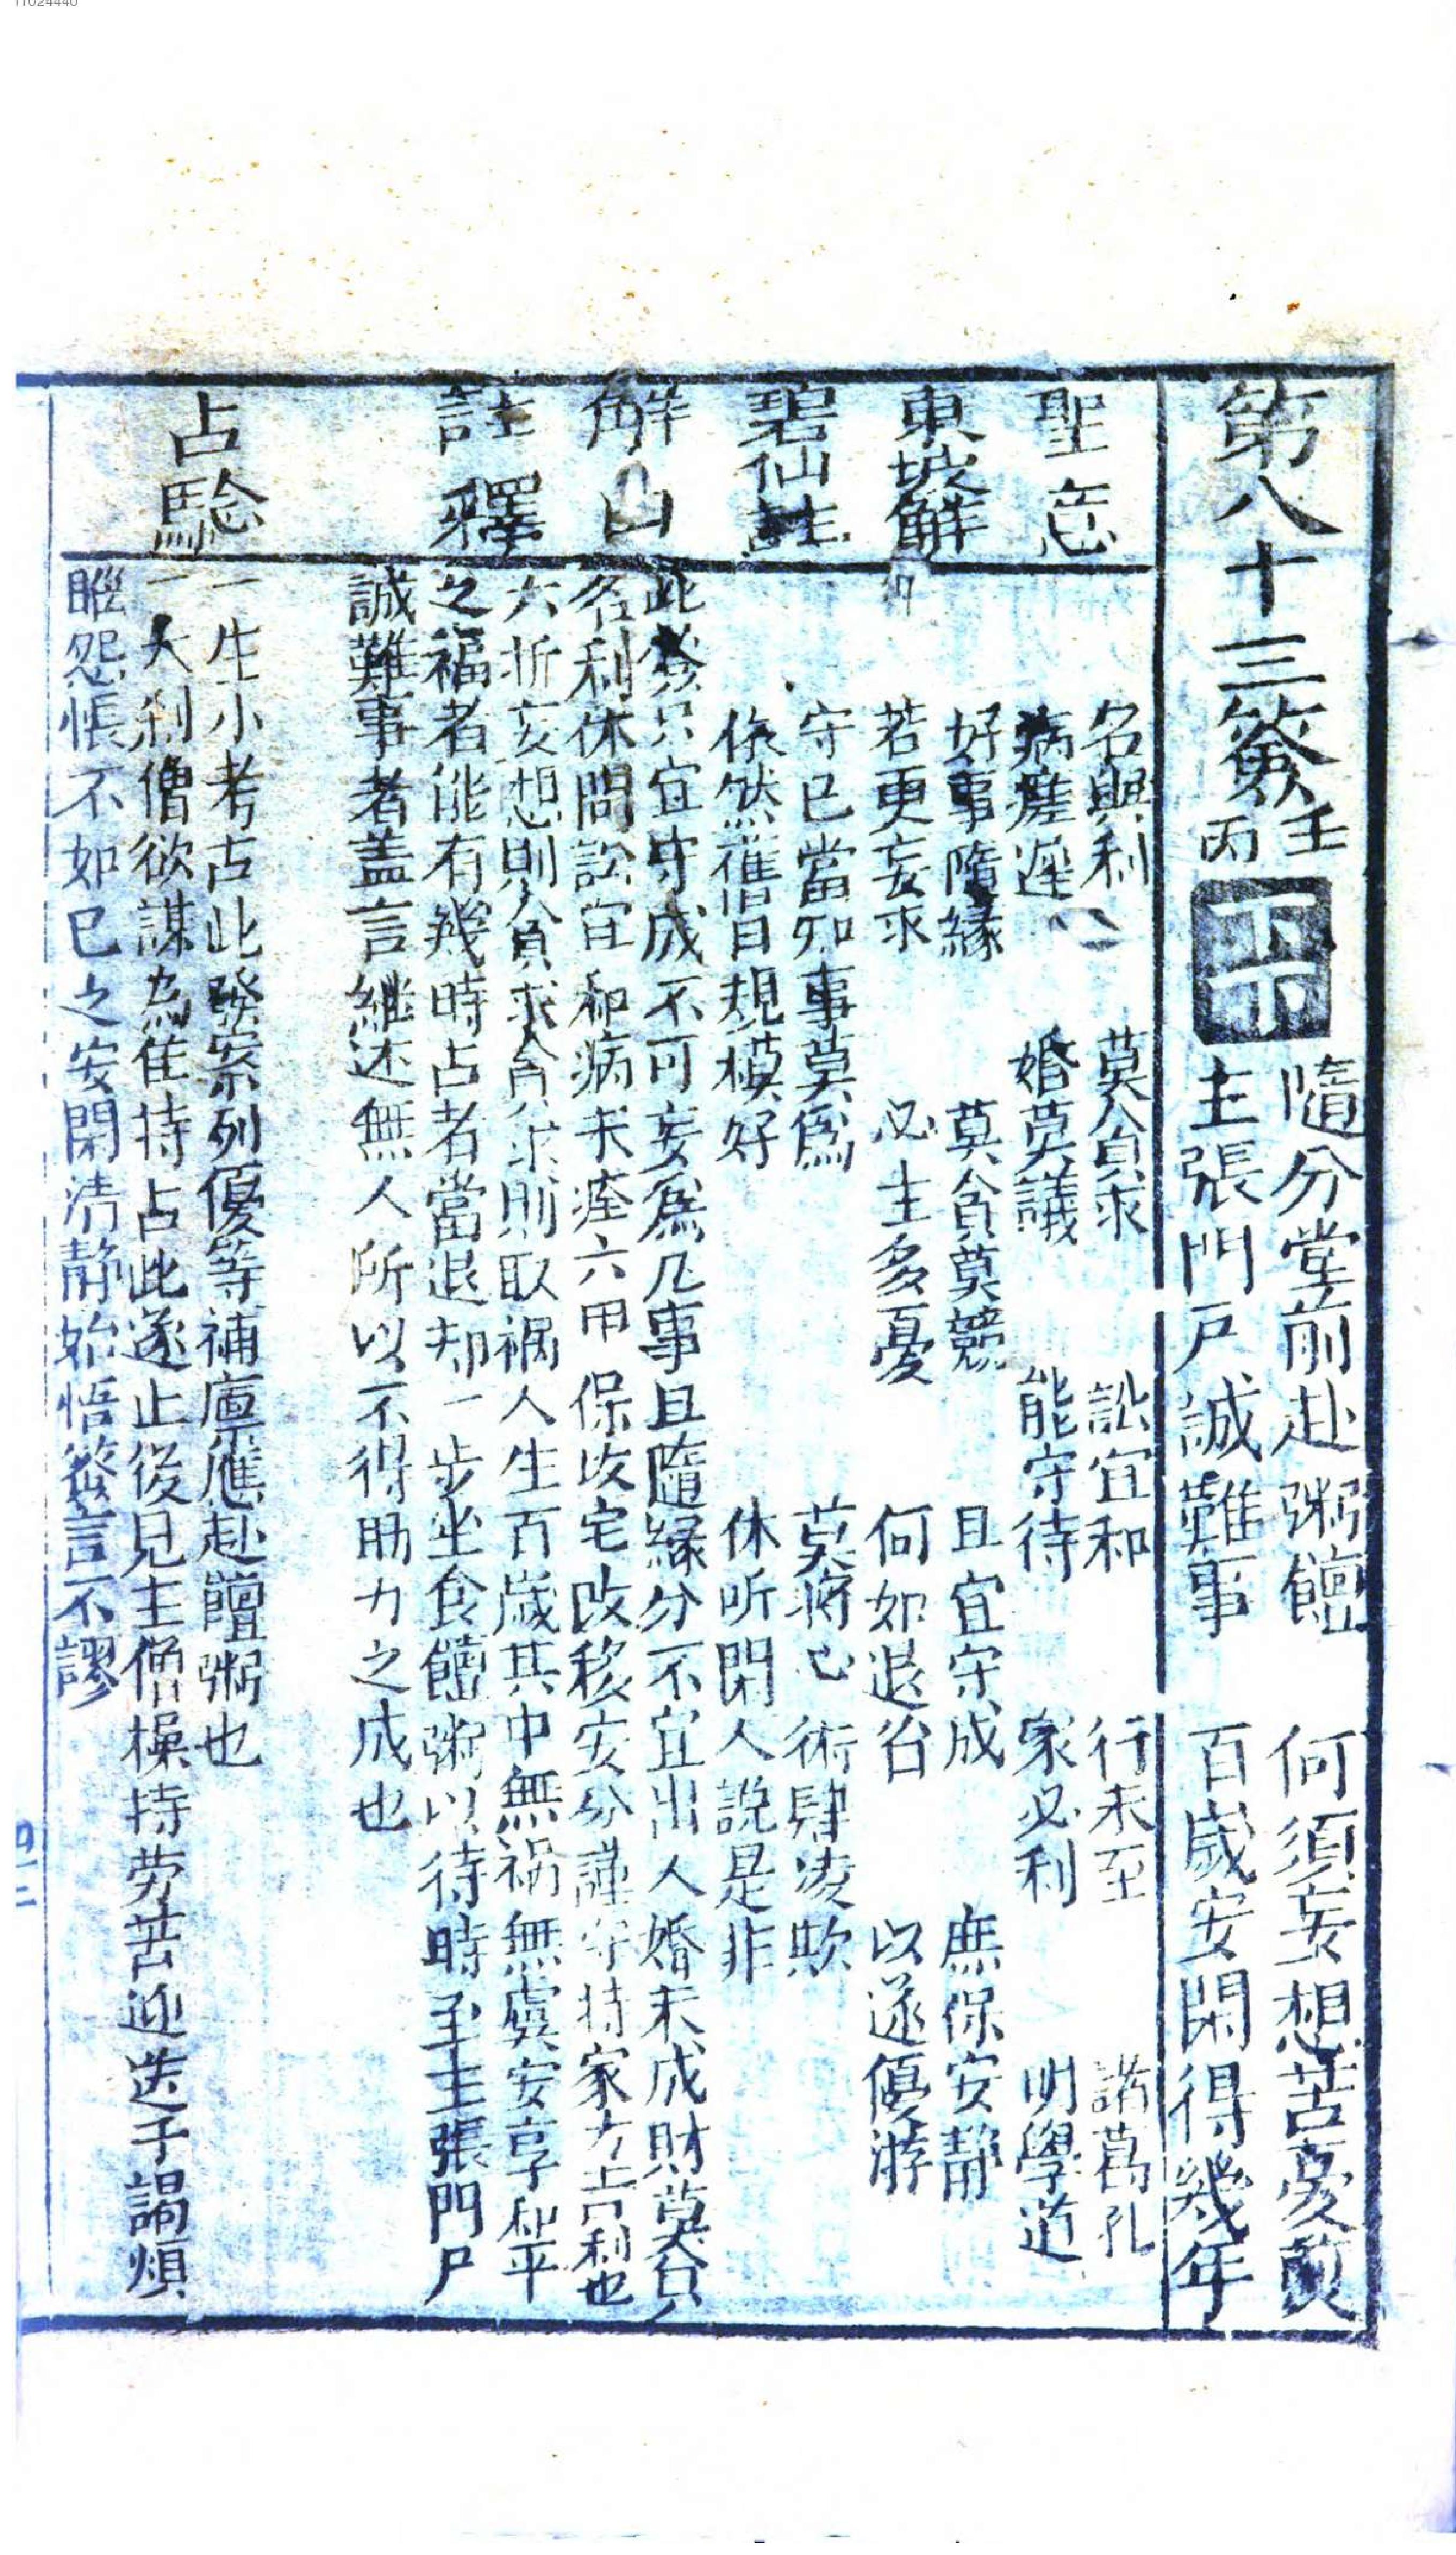 第八十三簽 壬丙 下下
隨分堂前赴粥饘 何須妄想苦憂煎
主張門戶誠難事 百歲安閑得幾年
聖意
名與利 莫貪求 訟宜和 行未至 諸葛孔
病瘥遲 婚莫議 能守待 家必利 明學道
東坡解
好事隨緣 莫貪莫競 且宜守成 庶保安靜
若更妄求 必生多憂 何如退台 以遂優游
碧仙註
守已當知事莫爲 莫將心術肆凌欺
依然舊日規模好 休听閑人說是非
解曰
此簽只宜守成不可妄爲凡事且隨緣分不宜出人婚未成財莫貪
名利休問訟宜和病未痊六甲保改宅改移安分謹守持家方吉利也
註釋
大祈妄想則貪求貪求則取禍人生百歲其中無禍無虞安享和平
之福者能有幾時占者當退却一步坐食饘粥以待時至主張門戶
誠難事者盖言繼述無人所以不得助力之成也
占驗
一生小考占此發案列優等補廩應赴饘粥也
一大刹僧欲謀為住持占此遂止後見主僧操持劳苦迎送予謁煩
睚怨悵不如已之安閑清靜始悟簽言不謬